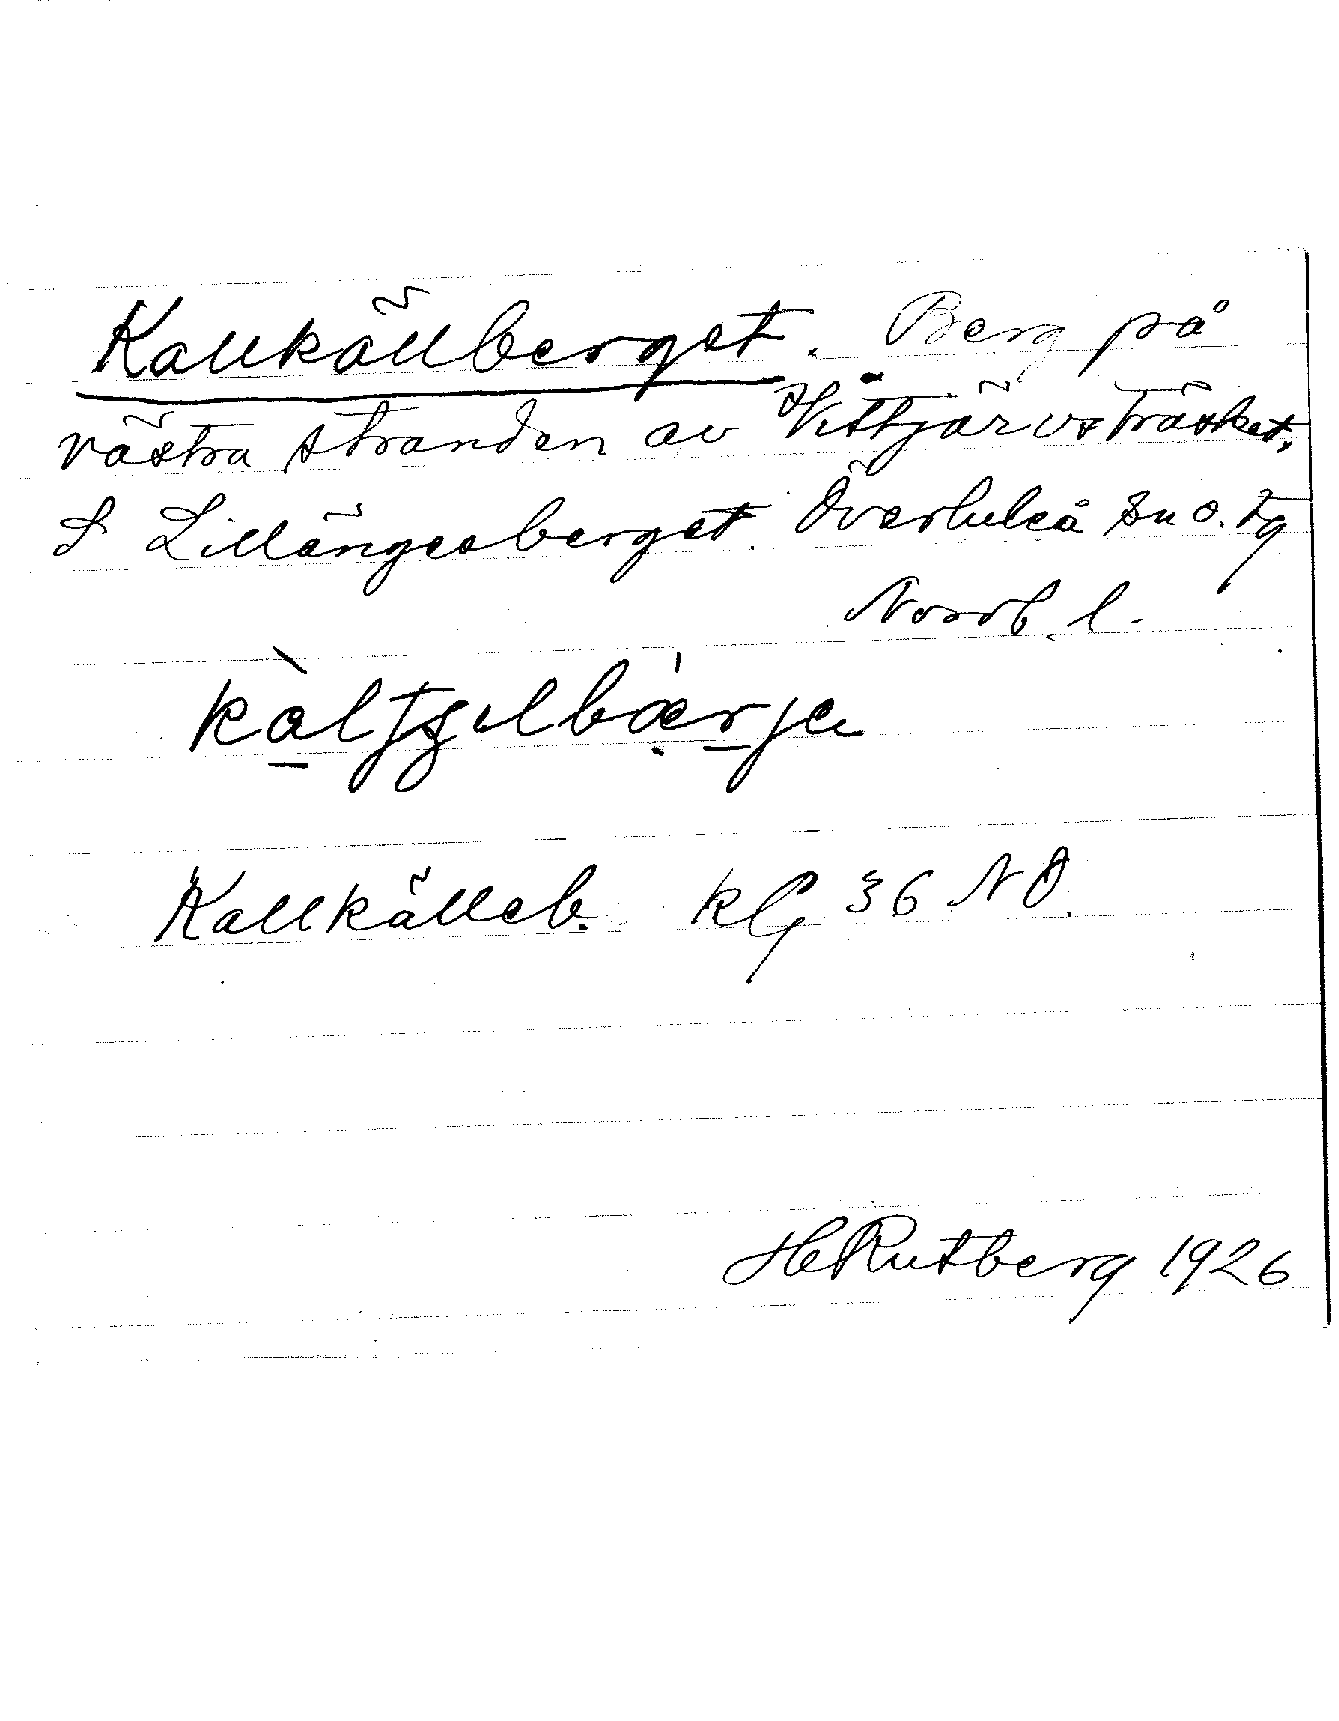 Kallkällberget. Berg på
västra stranden av Vittjärvsträsket,
S Lillängesberget. Överluleå sn o. tg
Norrb. l.
Kallkälleb. kG 36 NO.
HRutberg 1926